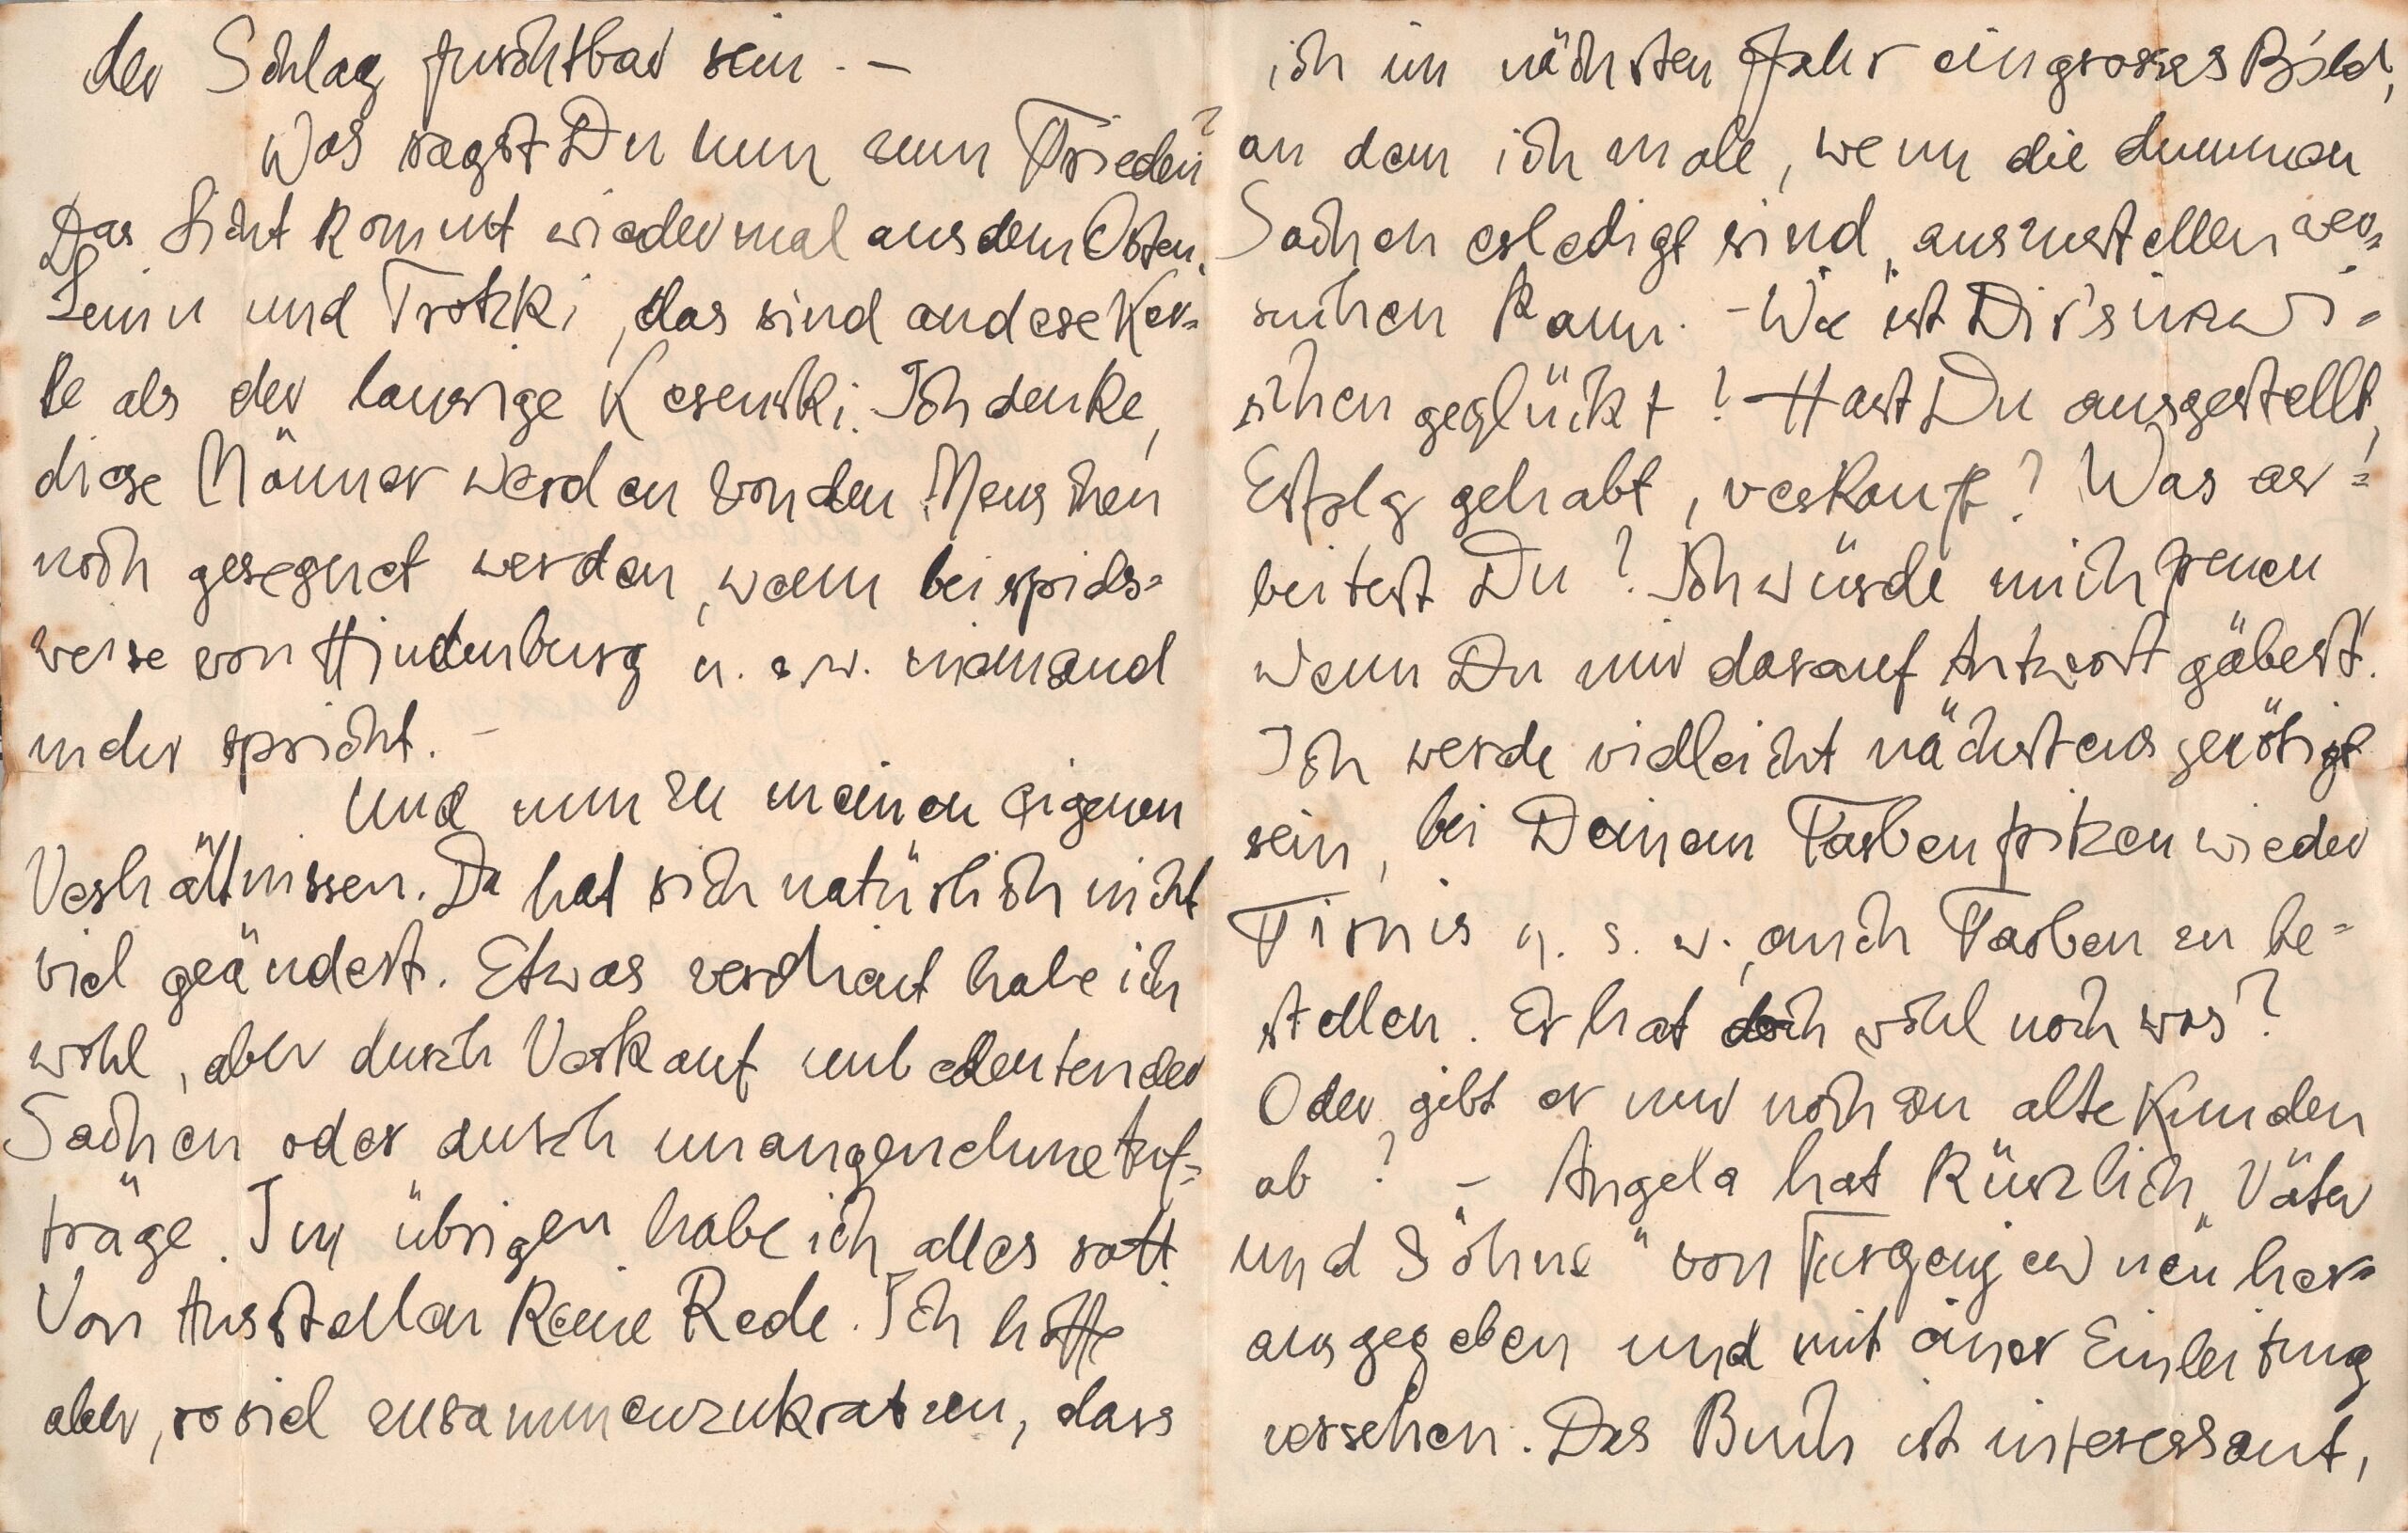 der Schlag furchtbar sein. –
Was sagst Du nun zum Frieden?
Das Licht kommt wieder mal aus dem Osten.
Lenin und Trotzki, das sind andere Ker=
le als der lausige Kerenski. Ich denke,
diese Männer werden von den Menschen
noch gesegnet werden, wenn beispiels=
weise von Hindenburg u. s. w. niemand
mehr spricht. –
Und nun zu meinen eigenen
Verhältnissen. Da hat sich natürlich nicht
viel geändert. Etwas verdient habe ich
wohl, aber durch Verkauf unbedeutender
Sachen oder durch unangenehme Auf=
träge. Im übrigen habe ich alles satt.
Von Ausstellen keine Rede. Ich hoffe
aber, soviel zusammenzukratzen, dass
ich im nächsten Jahr ein grosses Bild,
an dem ich male, wenn die dummen
Sachen erledigt sind, auszustellen ver=
suchen kann. – Wie ist Dir's inzwi=
schen geglückt? Hast Du ausgestellt,
Erfolg gehabt, verkauft? Was ar=
beitest Du? Ich würde mich freuen
wenn Du mir darauf Antwort gäbest.
Ich werde vielleicht nächstens genötigt
sein, bei Deinem Farbenfritzen wieder
Firnis u. s. w., auch Farben zu be=
stellen. Er hat doch wohl noch was?
Oder gibt er nur noch an alte Kunden
ab? – Angela hat kürzlich „Väter
und Söhne" von Turgenjew neu her=
ausgegeben und mit einer Einleitung
versehen. Das Buch ist interessant,